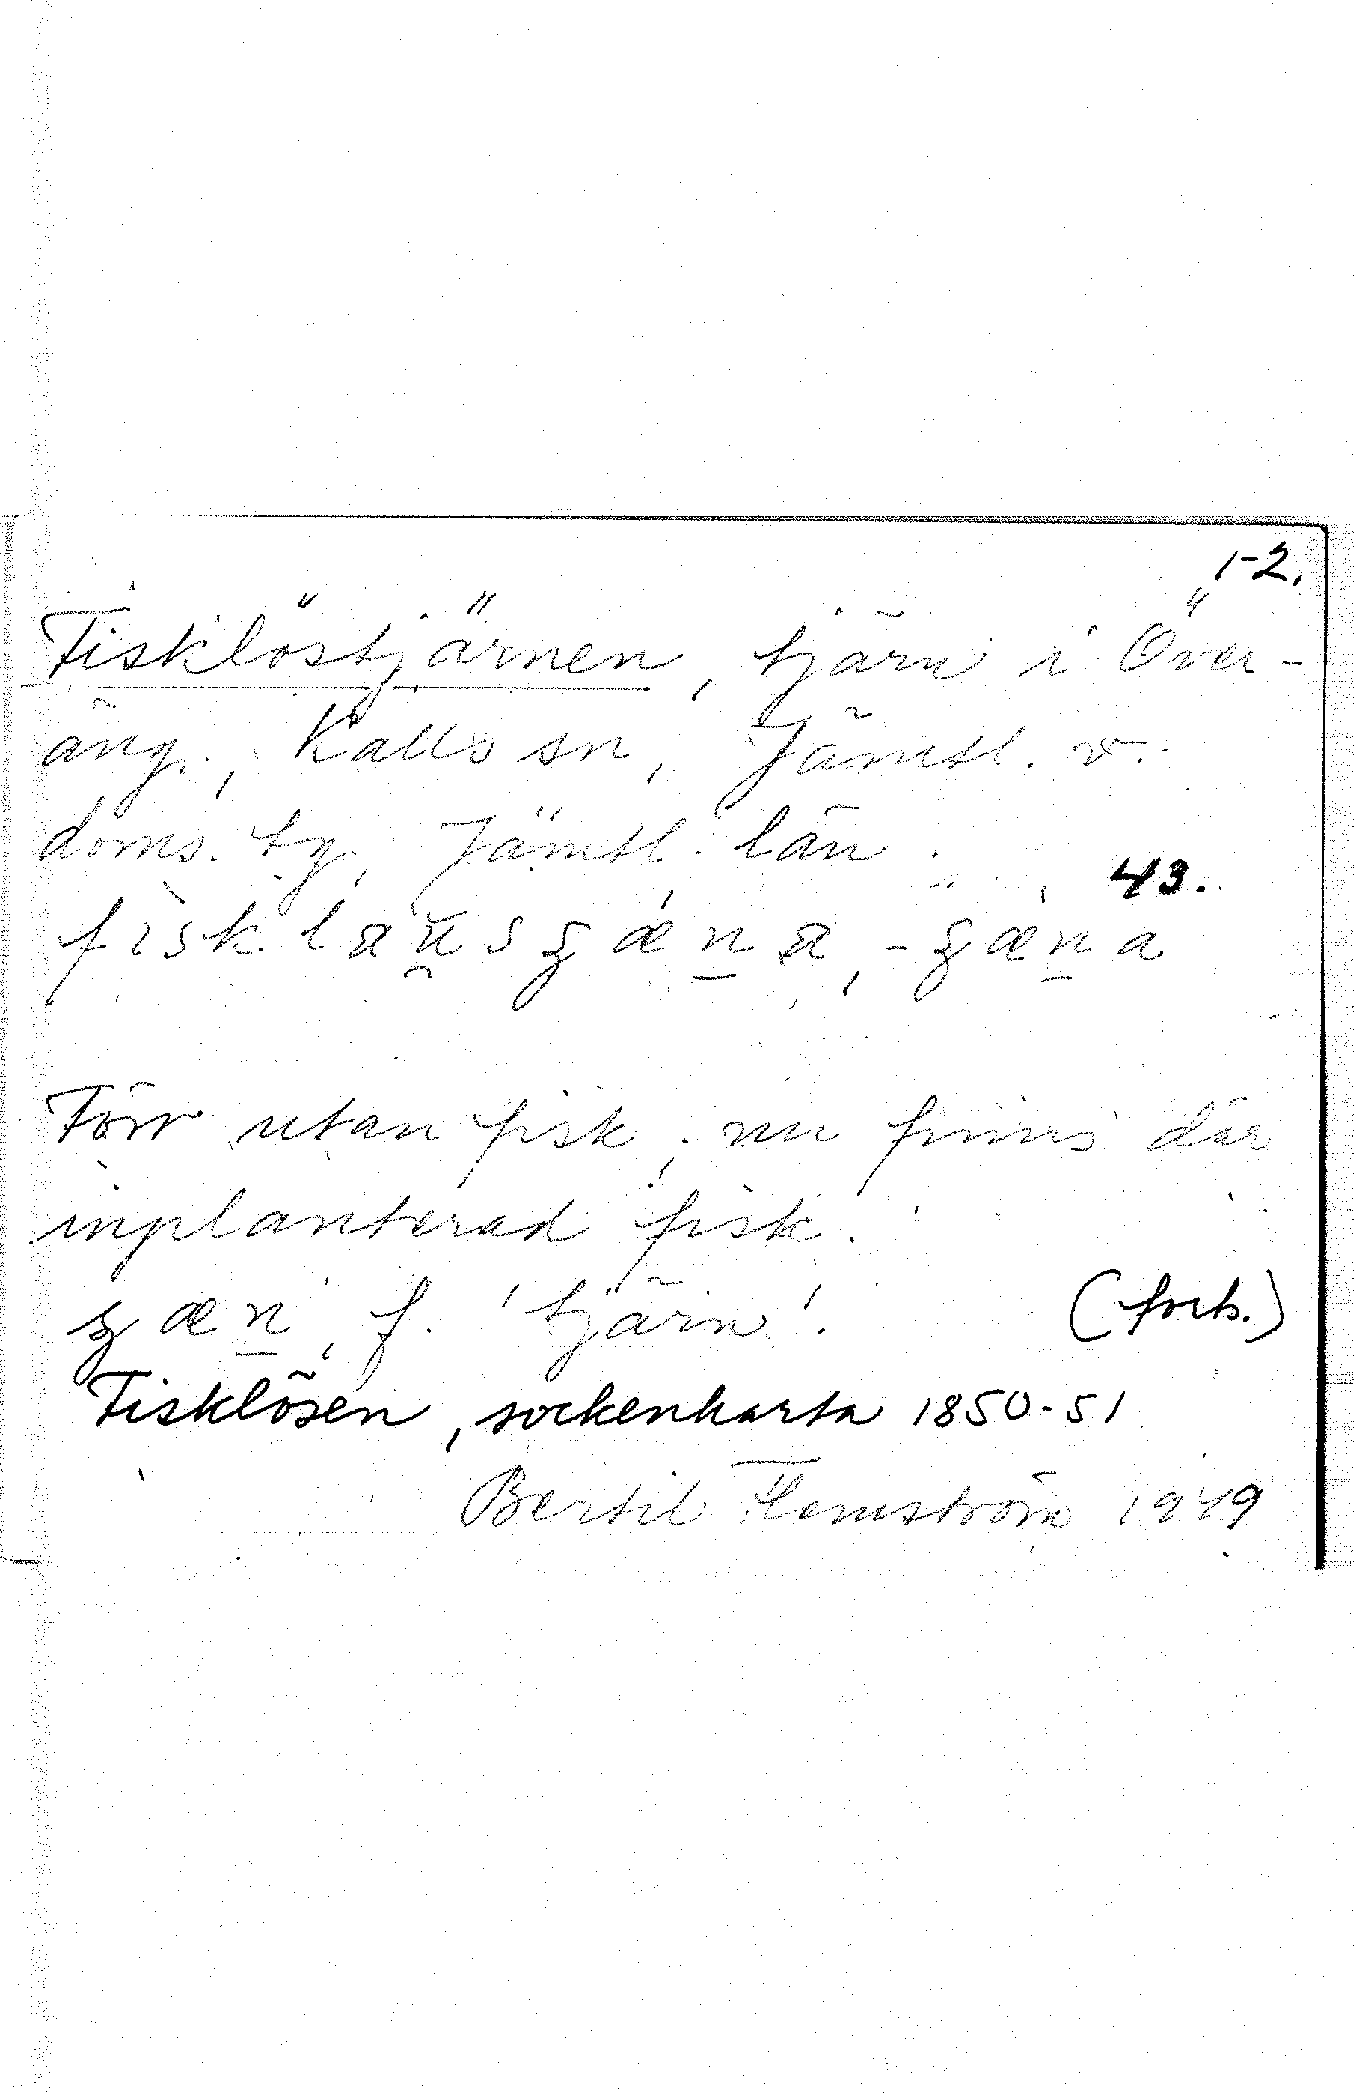 1-2.
Fisklöstjärnen, tjärn i Över-
äng, Kalls sn, Jämtl. v.
doms. tg, Jämtl. län.
43.
Förr utan fisk, nu finns där
inplanterad fisk.
f. 'tjärn'. (forts.)
Fisklösen, sockenkarta 1850-51
Bertil Flemström 1949